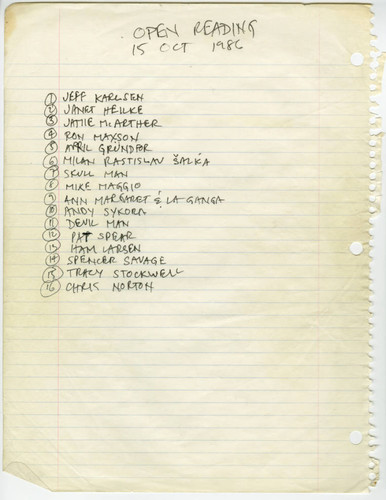 OPEN READING
15 OCT 1986
1 JEFF KARLSEN
2 JANET HEILKE
3 JAMIE McARTHER
4 RON MAXSON
5 APRIL GRÜNDFOR
6 MILAN RASTISLAV ŠALKA
7 SKULL MAN
8 MIKE MAGGIO
9 ANN MARGARET & LA GANGA
10 ANDY SYKORA
11 DEVIL MAN
12 PAT SPEAR
13 HAM LARSEN
14 SPENCER SAVAGE
15 TRACY STOCKWELL
16 CHRIS NORTON